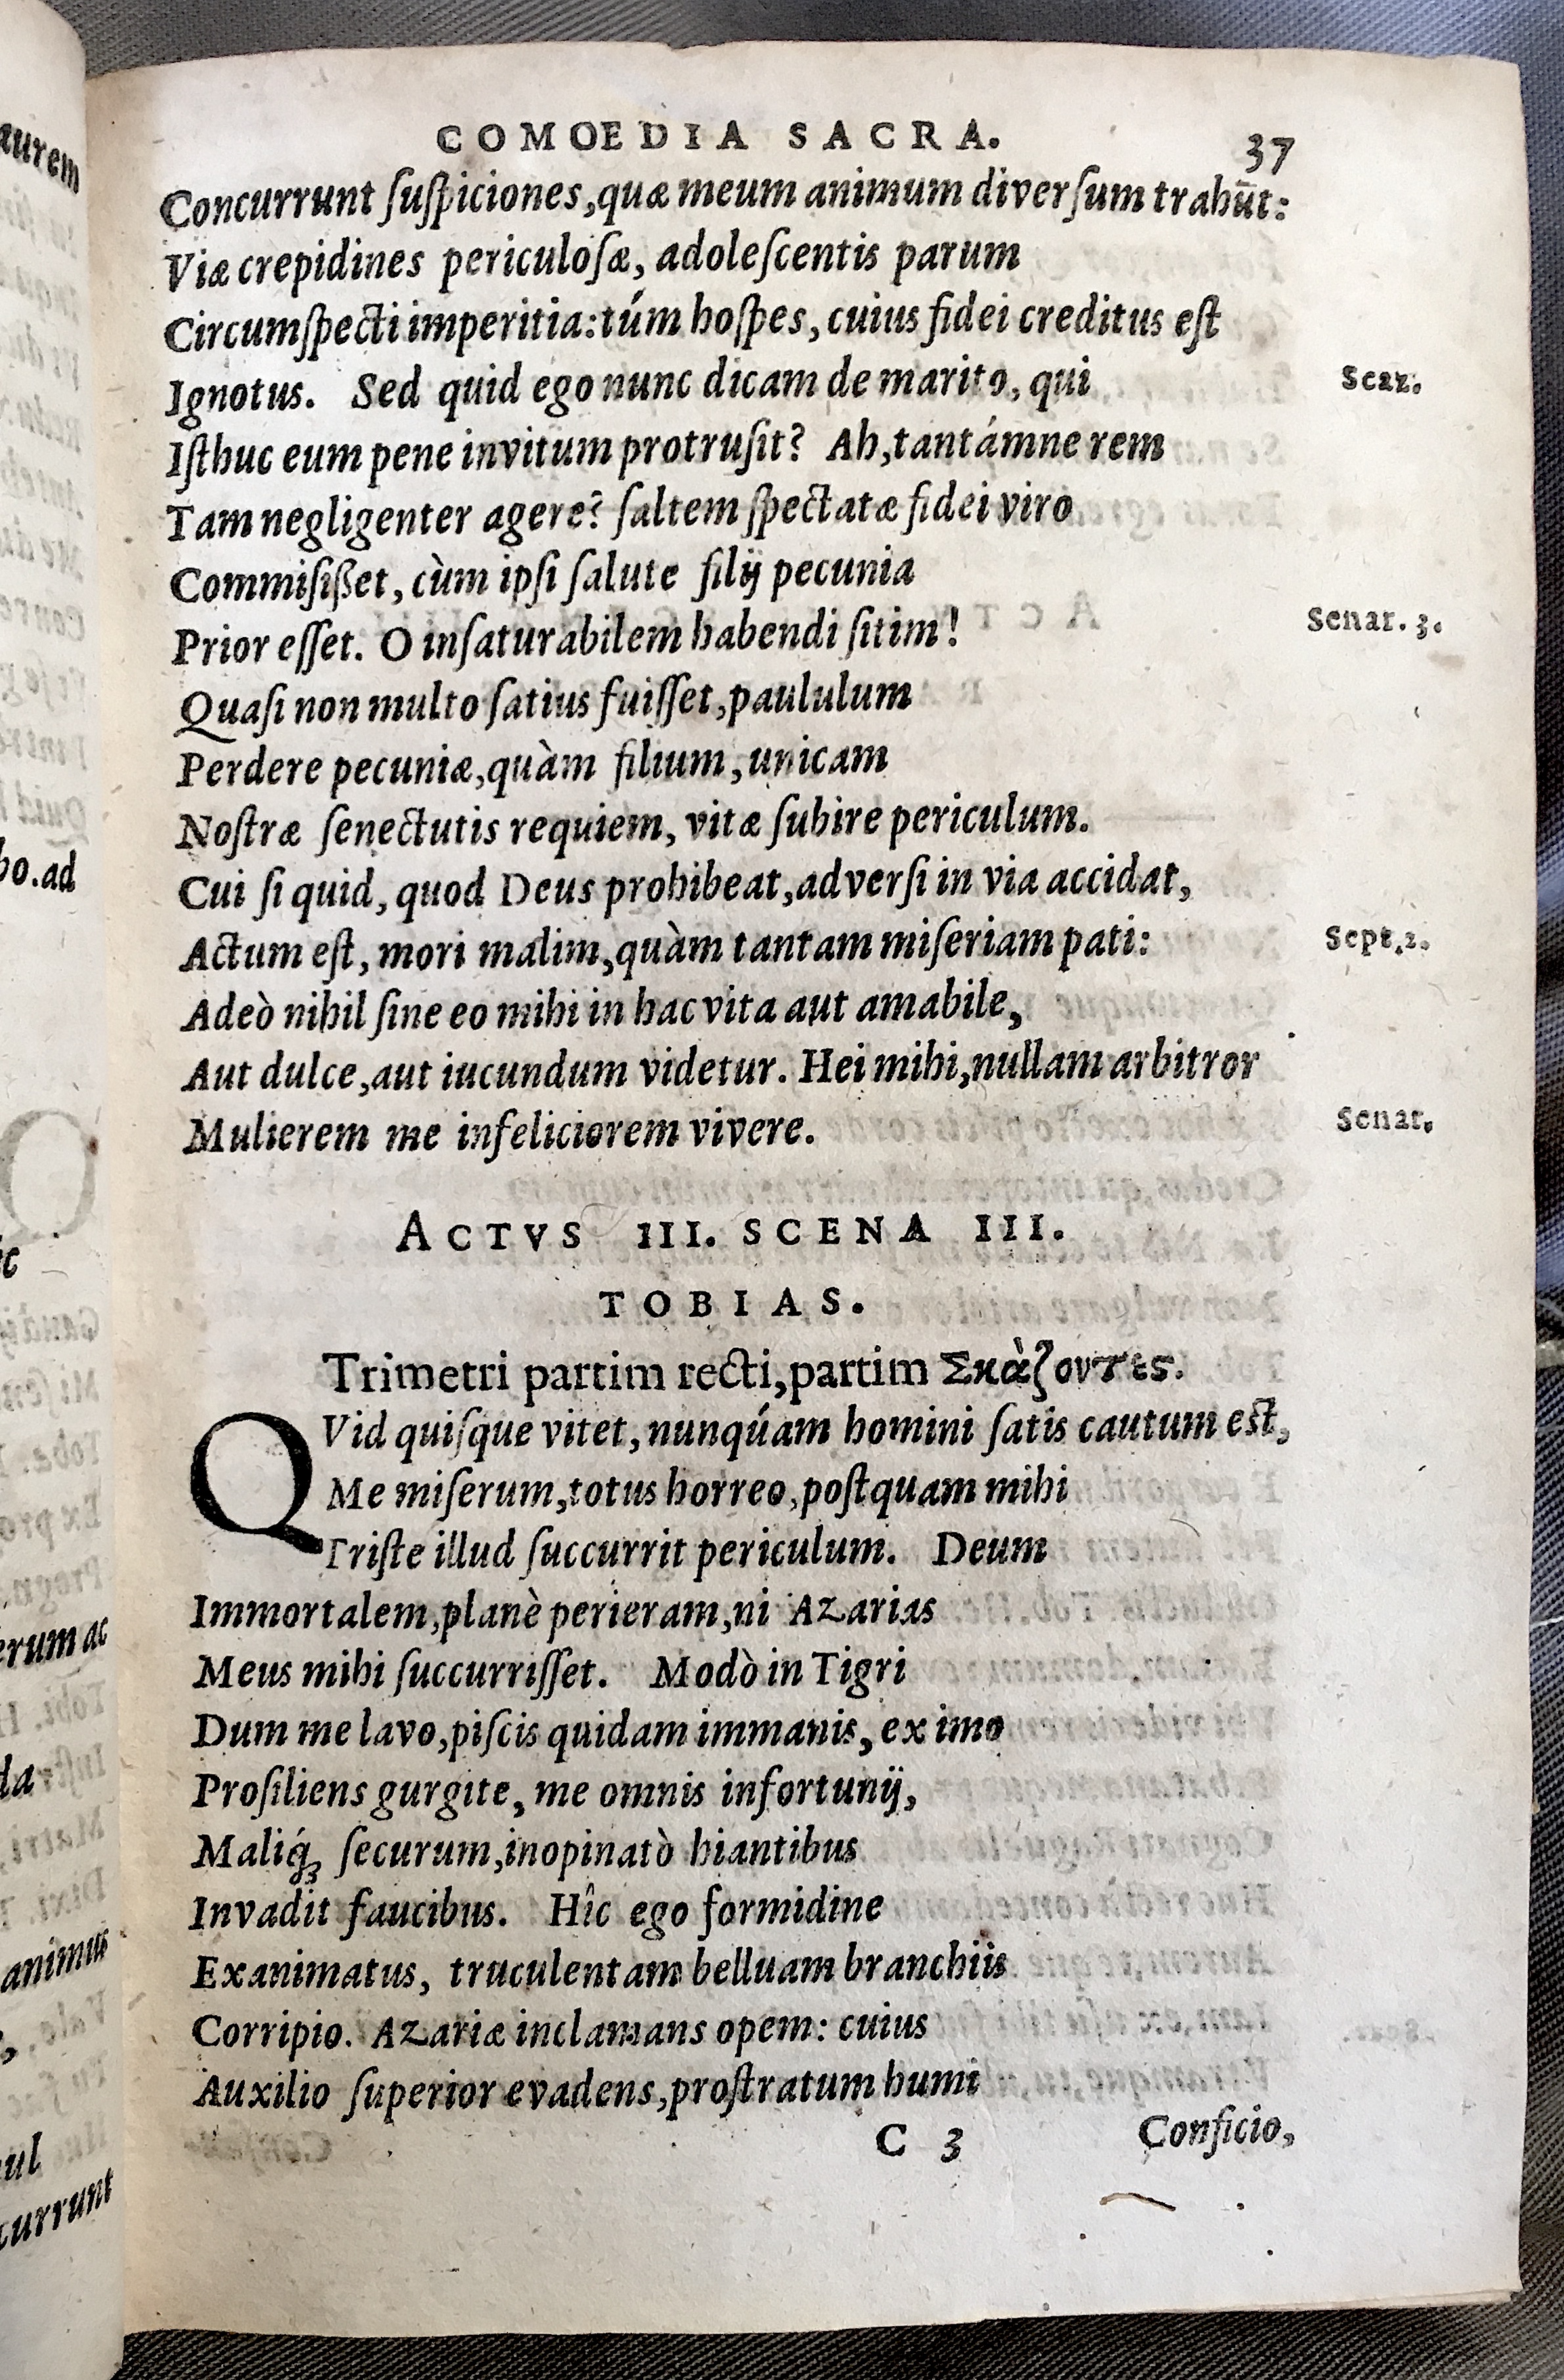 COMOEDIA SACRA. 37
Concurrunt ſuſpiciones, quæ meum animum diverſum trahūt:
Viæ crepidines periculoſæ, adoleſcentis parum
Circumſpecti imperitia: túm hoſpes, cuius fidei creditus eſt
Ignotus. Sed quid ego nunc dicam de marito, qui Scaz.
Iſthuc eum pene invitum protruſit? Ah, tantámne rem
Tam negligenter agere? ſaltem ſpectatæ fidei viro
Commiſißet, cùm ipſi ſalute filij pecunia
Prior eſſet. O inſaturabilem habendi ſitim! Senar. 3.
Quaſi non multo ſatius fuiſſet, paululum
Perdere pecuniæ, quàm filium, unicam
Noſtræ ſenectutis requiem, vitæ ſubire periculum.
Cui ſi quid, quod Deus prohibeat, adverſi in via accidat,
Actum eſt, mori malim, quàm tantam miſeriam pati: Sept. 2.
Adeò nihil ſine eo mihi in hac vita aut amabile,
Aut dulce, aut iucundum videtur. Hei mihi, nullam arbitror
Mulierem me infeliciorem vivere. Senar.
ACTVS III. SCENA III.
TOBIAS.
Trimetri partim recti, partim Σκὰζοντες.
QVid quiſque vitet, nunqúam homini ſatis cautum eſt,
Me miſerum, totus horreo, poſtquam mihi
Triſte illud ſuccurrit periculum. Deum
Immortalem, planè perieram, ni Azarias
Meus mihi ſuccurriſſet. Modò in Tigri
Dum me lavo, piſcis quidam immanis, ex imo
Proſiliens gurgite, me omnis infortunij,
Maliq́ꝫ ſecurum, inopinatò hiantibus
Invadit faucibus. Hîc ego formidine
Exanimatus, truculentam belluam branchiis
Corripio. Azariæ inclamans opem: cuius
Auxilio ſuperior evadens, proſtratum humi
C 3 Conficio,